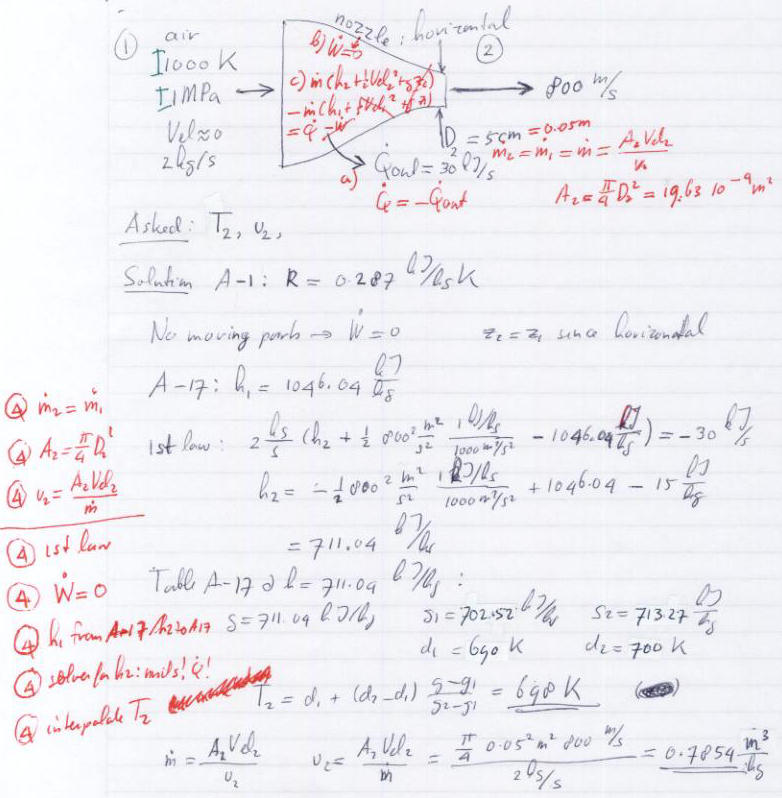 nozzle; horizontal
① air ②
1000 K
1 MPa
Vel ≈ 0
2 kg/s
b) Ẇ = 0
c) ṁ(h₂ + ½Vel₂² + gz₂)
− ṁ(h₁ + ½Vel₁² + gz₁)
= Q̇ − Ẇ
800 m/s
D₂ = 5cm = 0.05m
ṁ₂ = ṁ₁ = ṁ = A₂Vel₂/v₂
a) Q̇out = 30 kJ/s
Q̇ = −Q̇out
A₂ = π/4 D₂² = 19.63 10⁻⁴ m²
Asked: T₂, v₂,
Solution A-1: R = 0.287 kJ/kg K
No moving parts → Ẇ = 0 z₂ = z₁ since horizontal
A-17: h₁ = 1046.04 kJ/kg
1st law: 2 kg/s (h₂ + ½ 800² m²/s² 1 kJ/kg / 1000 m²/s² − 1046.04 kJ/kg) = −30 kJ/s
h₂ = −½ 800² m²/s² 1 kJ/kg / 1000 m²/s² + 1046.04 − 15 kJ/kg
= 711.04 kJ/kg
Table A-17 @ h = 711.04 kJ/kg :
g = 711.04 kJ/kg g₁ = 702.52 kJ/kg g₂ = 713.27 kJ/kg
d₁ = 690 K d₂ = 700 K
T₂ = d₁ + (d₂ − d₁) g − g₁ / g₂ − g₁ = 698 K
ṁ = A₂Vel₂/v₂ v₂ = A₂Vel₂/ṁ = π/4 0.05² m² 800 m/s / 2 kg/s = 0.7854 m³/kg
④ ṁ₂ = ṁ₁
④ A₂ = π/4 D₂²
④ v₂ = A₂Vel₂/ṁ
④ 1st law
④ Ẇ = 0
④ h₁ from A-17/h₂ to A17
④ solve for h₂: units! Q̇!
④ interpolate T₂